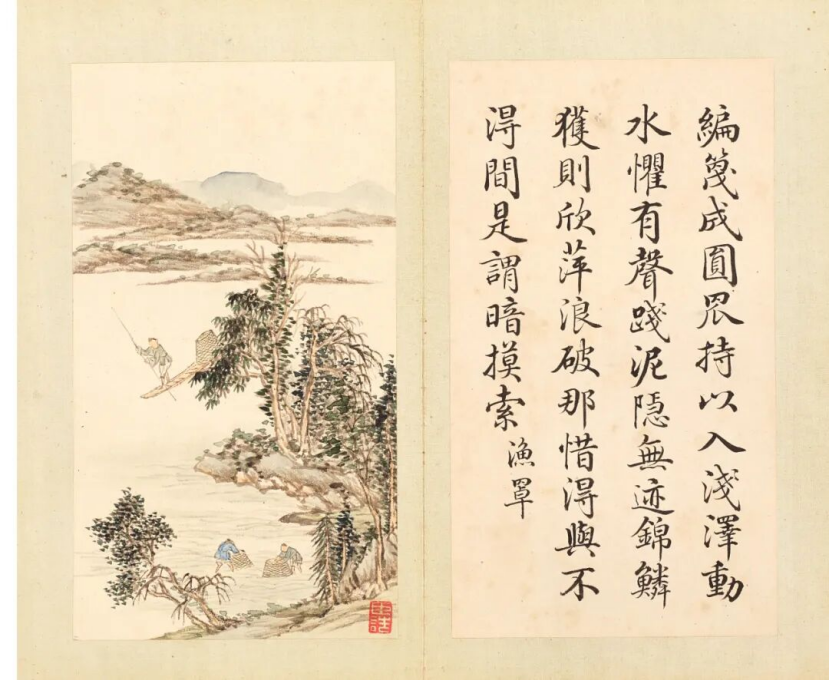 編篾成圓罛持以入淺澤動
水懼有聲踐泥隱無迹錦鱗
獲則欣萍浪破那惜淂與不
淂間是謂暗摸索
漁罩